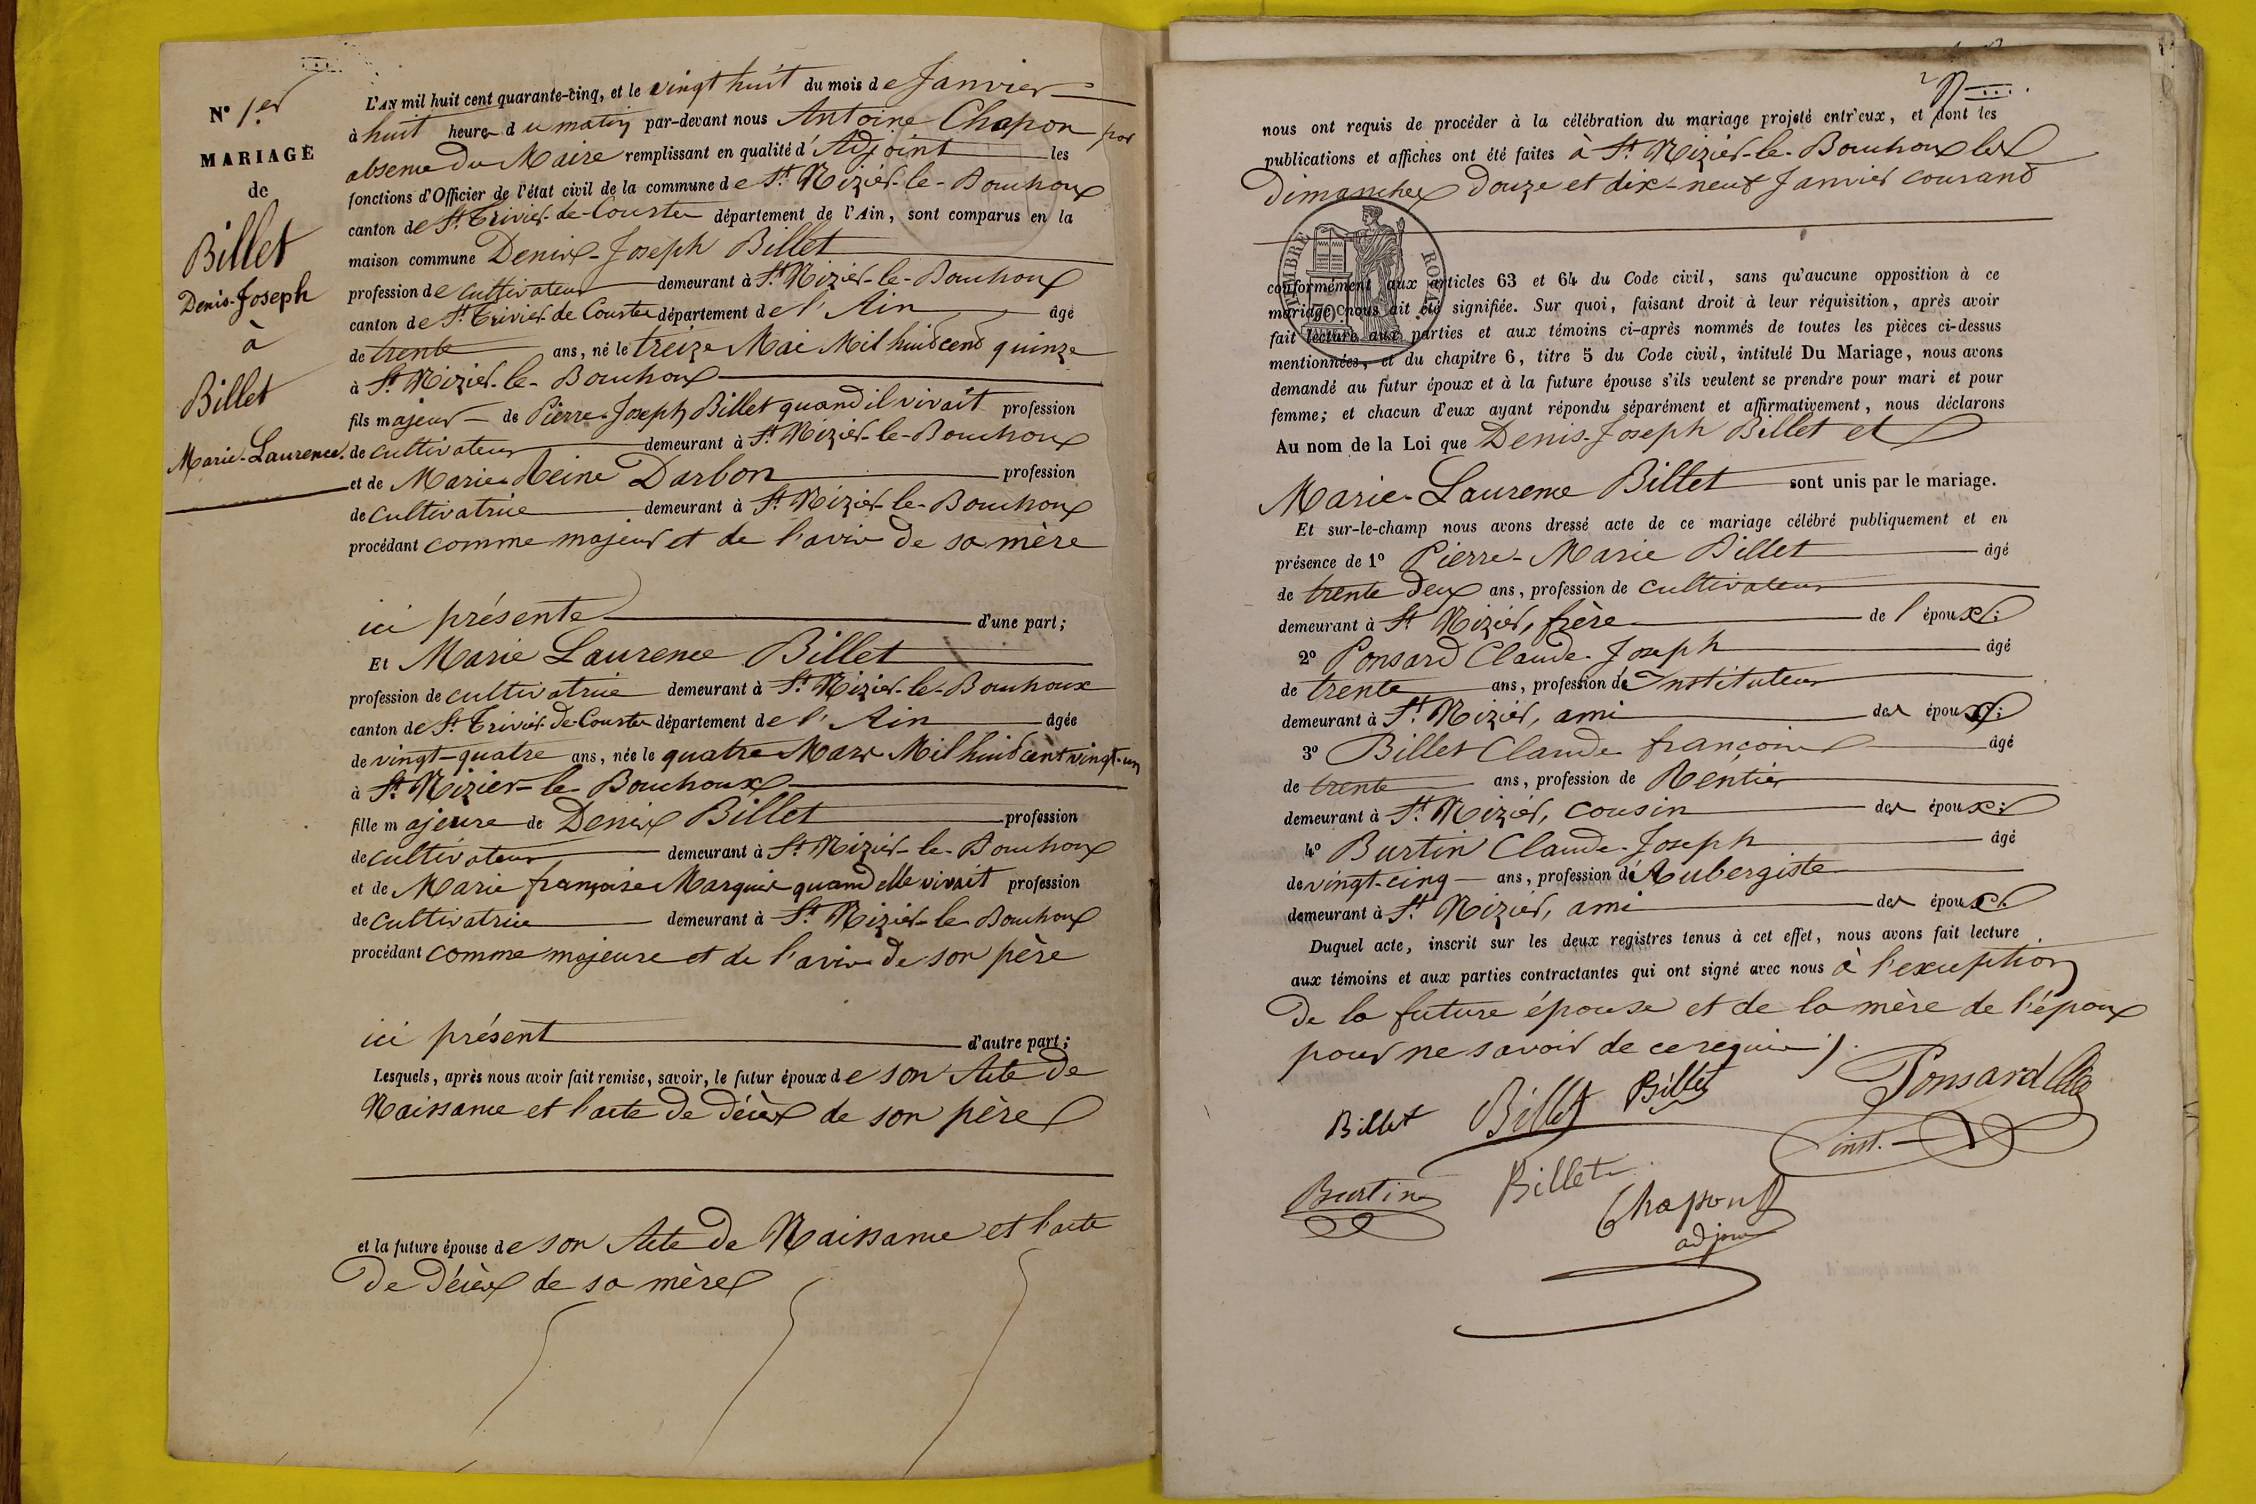 N° 1er
MARIAGE
de
Billet
Denis-Joseph
à
Billet
Marie-Laurence.
L'AN mil huit cent quarante-cinq, et le vingt huit du mois de Janvier
à huit heures du matin par-devant nous Antoine Chapon par
absence du Maire remplissant en qualité d'Adjoint les
fonctions d'Officier de l'état civil de la commune de St Nizier-le-Bouchoux
canton de St Trivier-de-Courtes département de l'Ain, sont comparus en la
maison commune Denis-Joseph Billet
profession de cultivateur demeurant à St Nizier-le-Bouchoux
canton de St Trivier de Courtes département de l'Ain âgé
de trente ans, né le treize Mai Mil huit cent quinze
à St Nizier-le-Bouchoux
fils majeur de Pierre-Joseph Billet quand il vivait profession
de cultivateur demeurant à St Nizier-le-Bouchoux
et de Marie Reine Darbon profession
de cultivatrice demeurant à St Nizier-le-Bouchoux
procédant comme majeur et de l'avis de sa mère
ici présente d'une part;
Et Marie Laurence Billet
profession de cultivatrice demeurant à St Nizier-le-Bouhoux
canton de St Trivier de Courtes département de l'Ain âgée
de vingt-quatre ans, née le quatre Mars Mil huit cent vingt-un
à St Nizier-le-Bouchoux
fille majeure de Denis Billet profession
de cultivateur demeurant à St Nizier-le-Bouchoux
et de Marie françoise Marquis quand elle vivait profession
de cultivatrice demeurant à St Nizier-le-Bouchoux
procédant comme majeure et de l'avis de son père
ici présent d'autre part;
Lesquels, après nous avoir fait remise, savoir, le futur époux de son Acte de
Naissance et l'acte de décès de son père
et la future épouse de son Acte de Naissance et l'acte
de décès de sa mère
nous ont requis de procéder à la célébration du mariage projeté entr'eux, et dont les
publications et affiches ont été faites à St Nizier-le-Bouchoux les
Dimanches Douze et dix-neuf Janvier courant
TIMBRE ROYAL
conformément aux articles 63 et 64 du Code civil, sans qu'aucune opposition à ce
mariage nous ait été signifiée. Sur quoi, faisant droit à leur réquisition, après avoir
fait lecture aux parties et aux témoins ci-après nommés de toutes les pièces ci-dessus
mentionnées, et du chapitre 6, titre 5 du Code civil, intitulé Du Mariage, nous avons
demandé au futur époux et à la future épouse s'ils veulent se prendre pour mari et pour
femme; et chacun d'eux ayant répondu séparément et affirmativement, nous déclarons
Au nom de la Loi que Denis-Joseph Billet et
Marie-Laurence Billet sont unis par le mariage.
Et sur-le-champ nous avons dressé acte de ce mariage célébré publiquement et en
présence de 1° Pierre-Marie Billet âgé
de trente deux ans, profession de cultivateur
demeurant à St Nizier, frère de l'époux;
2° Ponsard Claude-Joseph âgé
de trente ans, profession d'Instituteur
demeurant à St Nizier, ami des époux;
3° Billet Claude françois âgé
de trente ans, profession de Rentier
demeurant à St Nizier, cousin des époux;
4° Burtin Claude-Joseph âgé
de vingt-cinq ans, profession d'Aubergiste
demeurant à St Nizier, ami des époux.
Duquel acte, inscrit sur les deux registres tenus à cet effet, nous avons fait lecture
aux témoins et aux parties contractantes qui ont signé avec nous à l'exception
de la future épouse et de la mère de l'époux
pour ne savoir de ce requis
Billet Billet Billet Ponsard
inst.
Burtin Billet
Chapon
adjoint